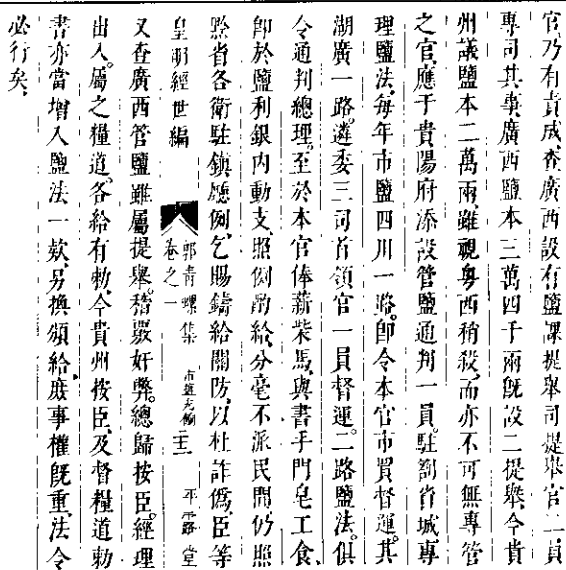 官乃有責成查廣西設有鹽課提舉司提舉官二員
專司其事廣西鹽本三萬四千兩旣設二提舉今貴
州議鹽本二萬兩雖視粤西稍殺而亦不可無專管
之官應于貴陽府添設管鹽通判一員駐劄省城專
理鹽法每年市鹽四川一路卽令本官市買督運其
湖廣一路遴委三司首領官一員督運二路鹽法俱
令通判總理至於本官俸薪柴馬與書手門皂工食
卽於鹽利銀內動支照例酌給分毫不派民間仍照
黔省各衛駐鎮廳例乞賜鑄給關防以杜詐僞臣等
皇明經世編
郭青螺集
卷之一
平露堂
又查廣西管鹽雖屬提舉稽覈奸弊總歸按臣經理
出入屬之糧道各給有勅今貴州按臣及督糧道勅
書亦當增入鹽法一欵另換頒給庶事權旣重法令
必行矣